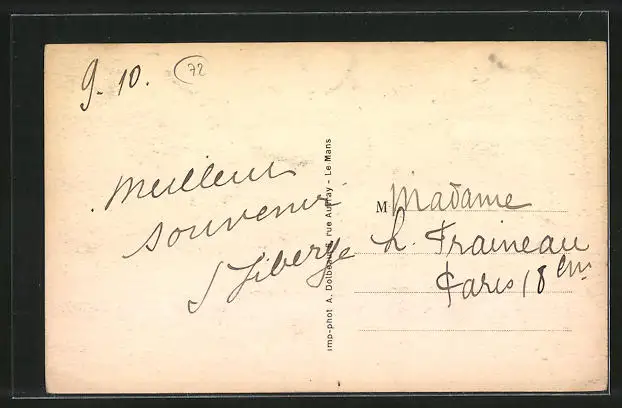 9-10.
72
Meilleur
souvenir
Imp-phot A. Dolbeau, rue Auvray - Le Mans
M Madame
L. Fraineau
Paris 18 em